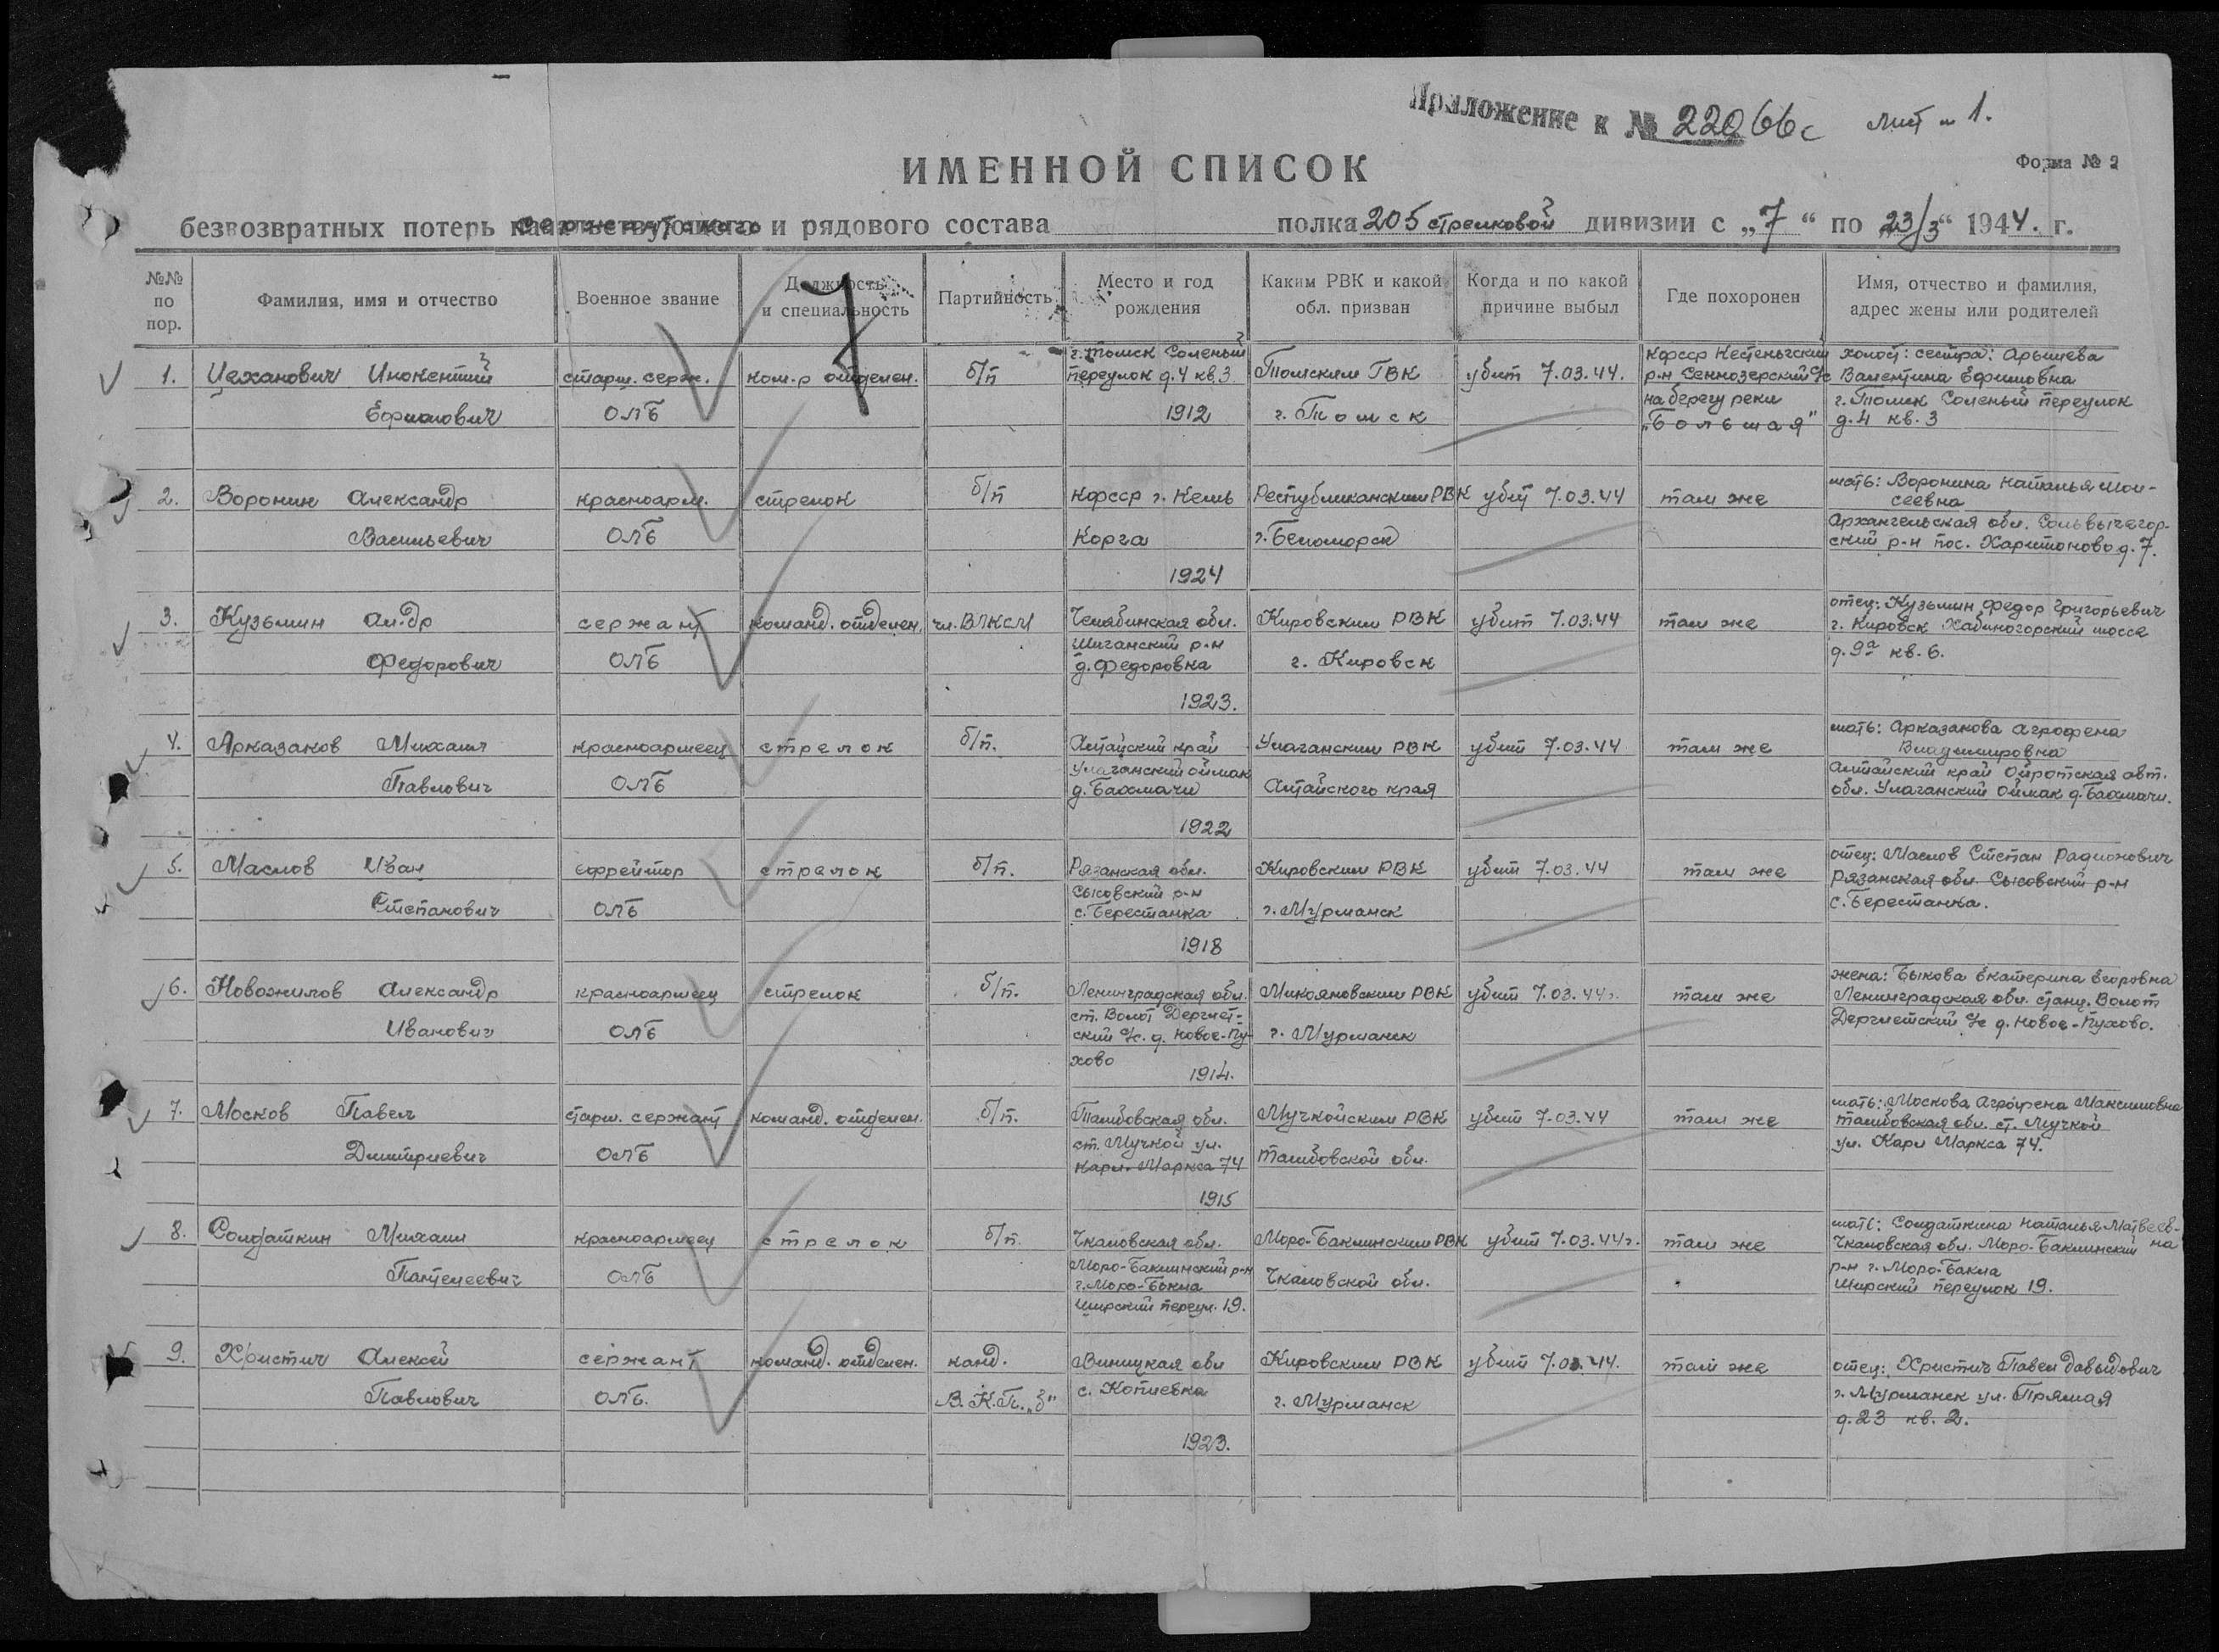 Приложение к № 22066с лист - 1.
ИМЕННОЙ СПИСОК
Форма № 2
безвозвратных потерь сержантского и рядового состава полка 205 стрелковой дивизии с „7“ по „23/3“ 1944. г.
№№ по пор.
Фамилия, имя и отчество
Военное звание
Должность и специальность
Партийность
Место и год рождения
Каким РВК и какой обл. призван
Когда и по какой причине выбыл
Где похоронен
Имя, отчество и фамилия, адрес жены или родителей
7
1. Цеханович Инокентий
Ефимович
старш. серж.
ОЛБ
ком-р отделен.
б/п
г. Томск Соленый
переулок д.4 кв.3
1912
Томским ГВК
г. Томск
убит 7.03.44.
Кфсср Кестеньгский
р-н Сеннозерский с/с
на берегу реки
„Большая"
холост: сестра: Арышева
Валентина Ефимовна
г. Томск Соленый переулок
д.4 кв.3
2. Воронин Александр
Васильевич
красноарм.
ОЛБ
стрелок
б/п
Кфсср г. Кемь
Корга
1924
Республиканским РВК
г. Беломорск
убит 7.03.44
там же
мать: Воронина Наталья Мои-
сеевна
Архангельская обл. Сольвычегор-
ский р-н пос. Харитоново д. 7.
3. Кузьмин Ал-др
Федорович
сержант
ОЛБ
команд. отделен.
чл. ВЛКСМ
Челябинская обл.
Шиганский р-н
д. Федоровка
1923.
Кировским РВК
г. Кировск
убит 7.03.44
там же
отец: Кузьмин Федор Григорьевич
г. Кировск Хабиногорский шоссе
д. 9а кв. 6.
4. Арказаков Михаил
Павлович
красноармеец
ОЛБ
стрелок
б/п.
Алтайский край
Улаганский аймак
д. Бахмачи
1922
Улаганским РВК
Алтайского края
убит 7.03.44
там же
мать: Арказакова Агрофена
Владимировна
Алтайский край Ойротская авт.
обл. Улаганский аймак д. Бахмачи.
5. Маслов Иван
Степанович
ефрейтор
ОЛБ
стрелок
б/п.
Рязанская обл.
Сысовский р-н
с. Берестанка
1918
Кировским РВК
г. Мурманск
убит 7.03.44
там же
отец: Маслов Степан Радионович
Рязанская обл. Сысовский р-н
с. Берестанка.
6. Новожилов Александр
Иванович
красноармеец
ОЛБ
стрелок
б/п.
Ленинградская обл.
ст. Волот Дерглет-
ский с/с. д. Новое-Пу-
хово
1914.
Микояновским РВК
г. Мурманск
убит 7.03.44г.
там же
жена: Быкова Екатерина Егоровна
Ленинградская обл. станц. Волот
Дерглетский с/с д. Новое-Пухово.
7. Москов Павел
Дмитриевич
старш. сержант
ОЛБ
команд. отделен.
б/п.
Тамбовская обл.
ст. Мучкой ул.
Карл-Маркса 74
1915
Мучкойским РВК
Тамбовской обл.
убит 7.03.44
там же
мать: Москова Агрофена Максимовна
Тамбовская обл. ст. Мучкой
ул. Карл Маркса 74.
8. Солдаткин Михаил
Пантелеевич
красноармеец
ОЛБ
стрелок
б/п.
Чкаловская обл.
Моро-Баклинский р-н
г. Моро-Бакла
Ширский переул. 19.
Моро-Баклинским РВК
Чкаловской обл.
убит 7.03.44г.
там же
мать: Солдаткина Наталья Матвеев-
на
Чкаловская обл. Моро-Баклинский
р-н г. Моро-Бакла
Ширский переулок 19.
9. Христич Алексей
Павлович
сержант
ОЛБ.
команд. отделен.
канд.
В.К.П. „б"
Виницкая обл
с. Копиевка
1923.
Кировским РВК
г. Мурманск
убит 7.03.44.
там же
отец: Христич Павел Давыдович
г. Мурманск ул. Прямая
д. 23 кв. 2.